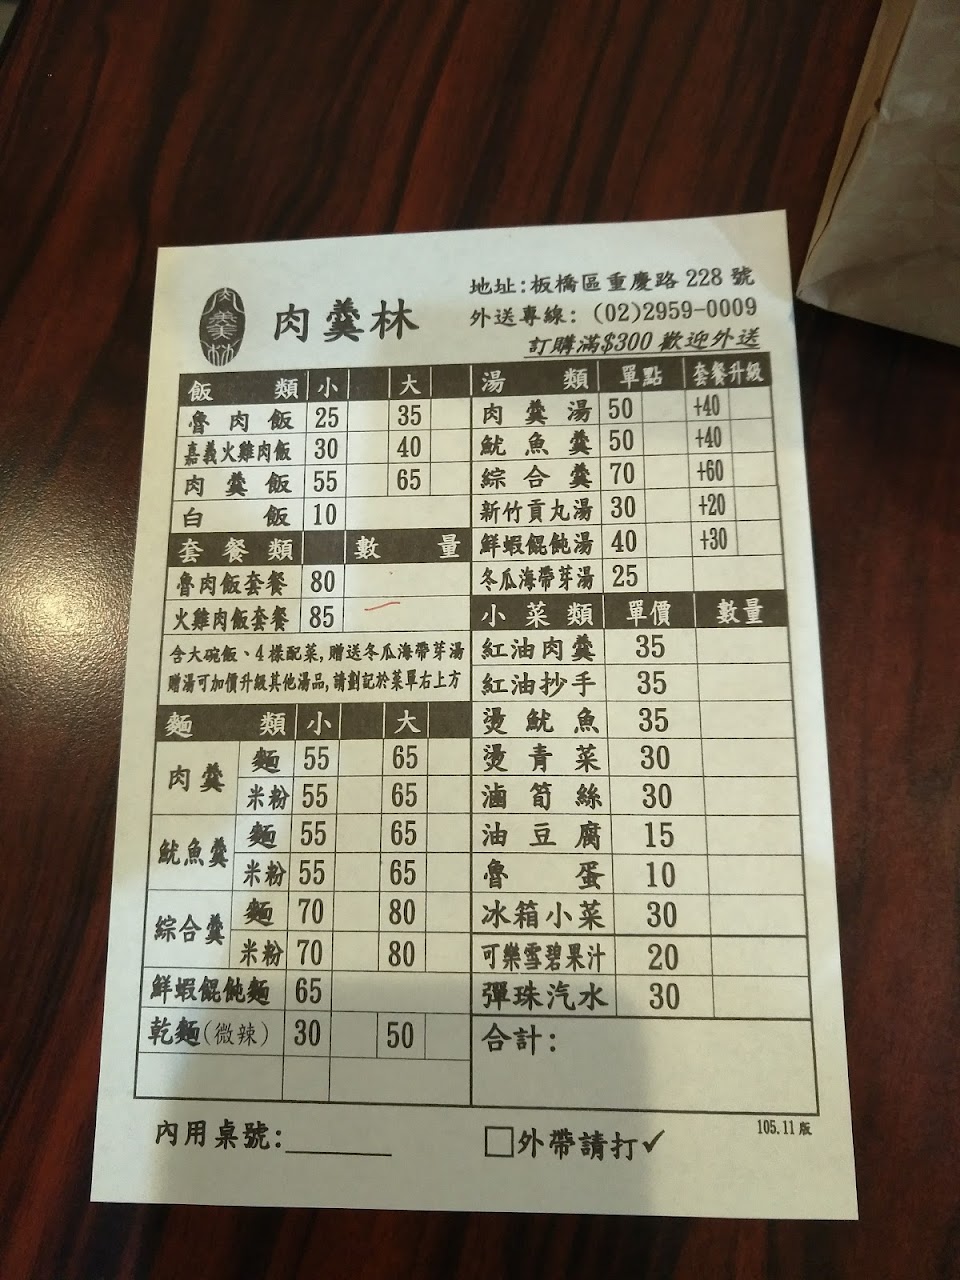 肉羹林
肉羹林
地址:板橋區重慶路228號
外送專線: (02)2959-0009
訂購滿$300歡迎外送
飯類 小 大
魯肉飯 25 35
嘉義火雞肉飯 30 40
肉羹飯 55 65
白飯 10
套餐類 數量
魯肉飯套餐 80
火雞肉飯套餐 85
含大碗飯、4樣配菜,贈送冬瓜海帶芽湯
贈湯可加價升級其他湯品,請劃記於菜單右上方
麵類 小 大
肉羹 麵 55 65
米粉 55 65
魷魚羹 麵 55 65
米粉 55 65
綜合羹 麵 70 80
米粉 70 80
鮮蝦餛飩麵 65
乾麵(微辣) 30 50
湯類 單點 套餐升級
肉羹湯 50 +40
魷魚羹 50 +40
綜合羹 70 +60
新竹貢丸湯 30 +20
鮮蝦餛飩湯 40 +30
冬瓜海帶芽湯 25
小菜類 單價 數量
紅油肉羹 35
紅油抄手 35
燙魷魚 35
燙青菜 30
滷筍絲 30
油豆腐 15
魯蛋 10
冰箱小菜 30
可樂雪碧果汁 20
彈珠汽水 30
合計:
內用桌號:
□外帶請打✓
105.11版